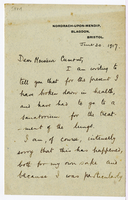 NORDRACH-UPON-MENDIP,
BLAGDON,
BRISTOL.
June 20. 1917.
Dear Monsieur Cumont,
I am writing to
tell you that for the present I
have broken down in health,
and have had to go to a
sanatorium for the treat-
ment of the lungs.
I am, of course, intensely
sorry that this has happened,
both for my own sake and
because I was particularly